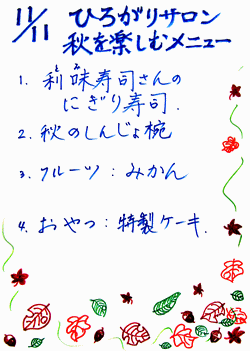 11/11 ひろがりサロン
秋を楽しむメニュー
1. 利味寿司さんの
にぎり寿司.
2. 秋のしんじょ椀
3. フルーツ：みかん
4. おやつ：特製ケーキ.